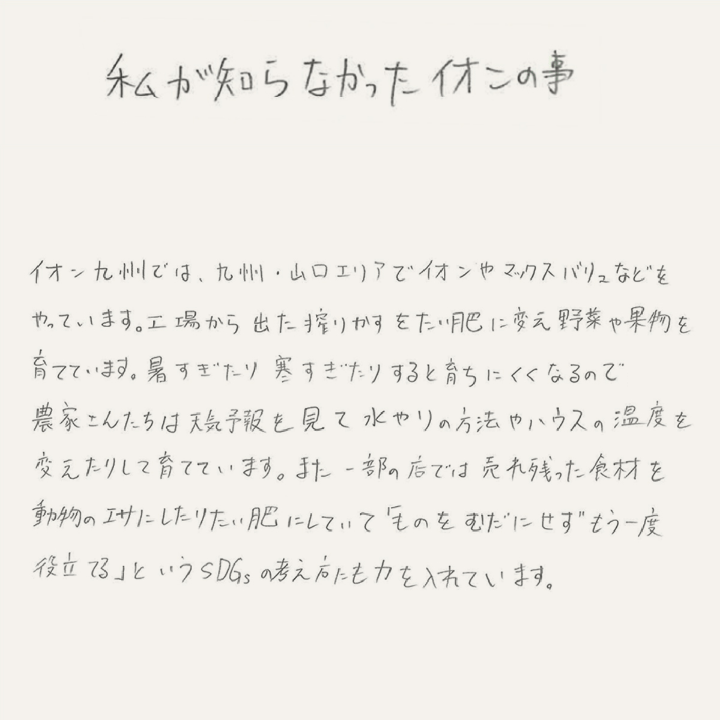 私が知らなかったイオンの事
イオン九州では、九州・山口エリアでイオンやマックスバリュなどを
やっています。工場から出た搾りかすをたい肥に変え野菜や果物を
育てています。暑すぎたり寒すぎたりすると育ちにくくなるので
農家さんたちは天気予報を見て水やりの方法やハウスの温度を
変えたりして育てています。また一部の店では売れ残った食材を
動物のエサにしたりたい肥にしていて「ものをむだにせずもう一度
役立てる」というSDGsの考え方にも力を入れています。